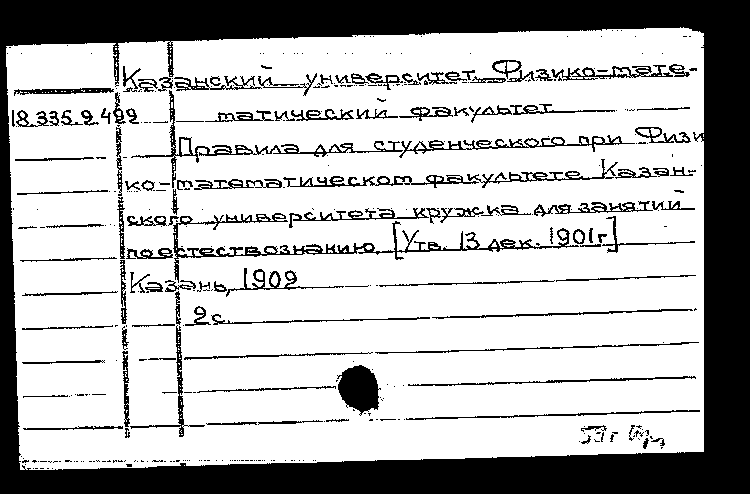 Казанский университет. Физико-мате-
18.335.9.499 матический факультет
Правила для студенческого при Физи
ко-математическом факультете Казан-
ского университета кружка для занятий
по естествознанию. [Утв. 13 дек. 1901г]
Казань, 1909
2с.
59г